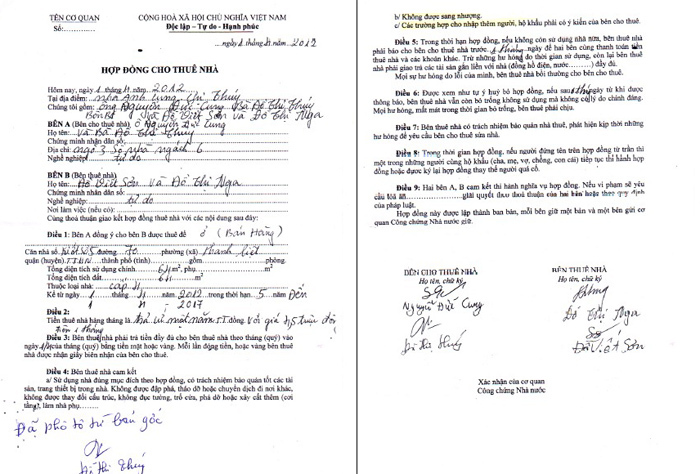 TÊN CƠ QUAN
CỘNG HOÀ XÃ HỘI CHỦ NGHĨA VIỆT NAM
Độc lập – Tự do - Hạnh phúc
ngày 1 tháng 4 năm 2012
HỢP ĐỒNG CHO THUÊ NHÀ
Hôm nay, ngày 1 tháng 4 năm 2012
Tại địa điểm: nhà Anh Cung Chị Thúy
Chúng tôi gồm: ông Nguyễn Đức Cung và Đỗ Thị Thúy
Bên B: Đỗ Viết Sơn và Đỗ Thị Nga
BÊN A (Bên cho thuê nhà) ô Nguyễn Đức Cung
Họ tên: và Bà Đỗ Thị Thúy
Chứng minh nhân số:
Địa chỉ: ngõ 3 số nhà ngách 6
Nghề nghiệp: tự do
BÊN B (Bên thuê nhà)
Họ tên: Đỗ Viết Sơn và Đỗ Thị Nga
Chứng minh nhân số:
Nghề nghiệp: tự do
Nơi làm việc (nếu có):
Cùng thoả thuận giao kết hợp đồng thuê nhà với các nội dung sau đây:
Điều 1: Bên A đồng ý cho bên B được thuê để ở (Bán Hàng)
Căn nhà số đường 70 phường (xã) Thanh liệt
quận (huyện) thành phố (tỉnh) gồm phòng.
Tổng diện tích sử dụng chính 64 m², phụ m²
Tổng diện tích đất 64 m².
Thuộc loại nhà: cấp 4
Kể từ ngày 1 tháng 4 năm 2012 trong thời hạn 5 năm Đến
1 - 4 - 2017
Điều 2:
Tiền thuê nhà hàng tháng là đồng. với giá triệu
1 tháng
Điều 3: Bên thuê nhà phải trả tiền đầy đủ cho bên thuê nhà theo tháng (quý) vào
ngày của tháng (quý) bằng tiền mặt hoặc vàng. Mỗi lần động tiền, hoặc vàng bên thuê
nhà được nhận giấy biên nhận của bên cho thuê.
Điều 4: Bên thuê nhà cam kết
a/ Sử dụng nhà đúng mục đích theo hợp đồng, có trách nhiệm bảo quản tốt các tài
sản, trang thiết bị trong nhà. Không được đập phá, tháo dỡ hoặc chuyển dịch đi nơi khác,
không được thay đổi cấu trúc, không đục tường, trổ cửa, phá dỡ hoặc xây cất thêm (cơi
tầng), làm nhà phụ
Đã phô tô từ bản gốc
Đỗ Thị Thúy
b/ Không được sang nhượng.
c/ Các trường hợp cho nhập thêm người, hộ khẩu phải có ý kiến của bên cho thuê.
Điều 5: Trong thời hạn hợp đồng, nếu không còn sử dụng nhà nữa, bên thuê nhà
phải báo cho bên cho thuê nhà trước tháng ngày để hai bên cùng thanh toán tiền
thuê nhà và các khoản khác. Trừ những hư hỏng do thời gian sử dụng, còn lại bên thuê
nhà phải giao trả các tài sản gắn liền với nhà (đồng hồ điện, nước) đầy đủ.
Mọi sự hư hỏng do lỗi của mình, bên thuê nhà bồi thường cho bên cho thuê.
Điều 6: Được xem như tự ý huỷ bỏ hợp đồng, nếu sau tháng ngày từ khi được
thông báo, bên thuê nhà vẫn còn bỏ trống không sử dụng mà không có lý do chính đáng.
Mọi hư hỏng, mất mát trong thời gian bỏ trống, bên thuê nhà phải chịu.
Điều 7: Bên thuê nhà có trách nhiệm bảo quản nhà thuê, phát hiện kịp thời những
hư hỏng để yêu cầu bên cho thuê sửa nhà.
Điều 8: Trong thời gian hợp đồng, nếu người đứng tên trên hợp đồng từ trần thì
một trong những người cùng hộ khẩu (cha, mẹ, vợ, chồng, con cái) tiếp tục thi hành hợp
đồng hoặc được ký lại hợp đồng thay thế người quá cố.
Điều 9: Hai bên A, B cam kết thi hành nghĩa vụ hợp đồng. Nếu vi phạm sẽ yêu
cầu toà án giải quyết theo thoả thuận của hai bên hoặc theo quy định
của pháp luật.
Hợp đồng này được lập thành ban bản, mỗi bên giữ một bản và một bên gửi cơ
quan Công chứng Nhà nước giữ.
BÊN CHO THUÊ NHÀ
Họ tên, chữ ký
Nguyễn Đức Cung
Đỗ Thị Thúy
BÊN THUÊ NHÀ
Họ tên, chữ ký
Đỗ Thị Nga
Đỗ Viết Sơn
Xác nhận của cơ quan
Công chứng Nhà nước